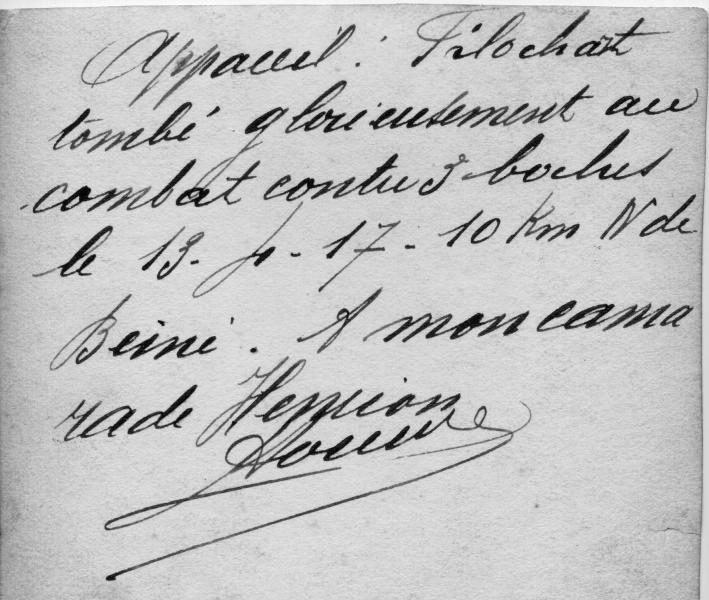 Appareil : Filochat
tombé glorieusement au
combat contre 3 boches
le 13 - 4 - 17 - 10 Km N de
Beine . A mon cama
rade Henrion